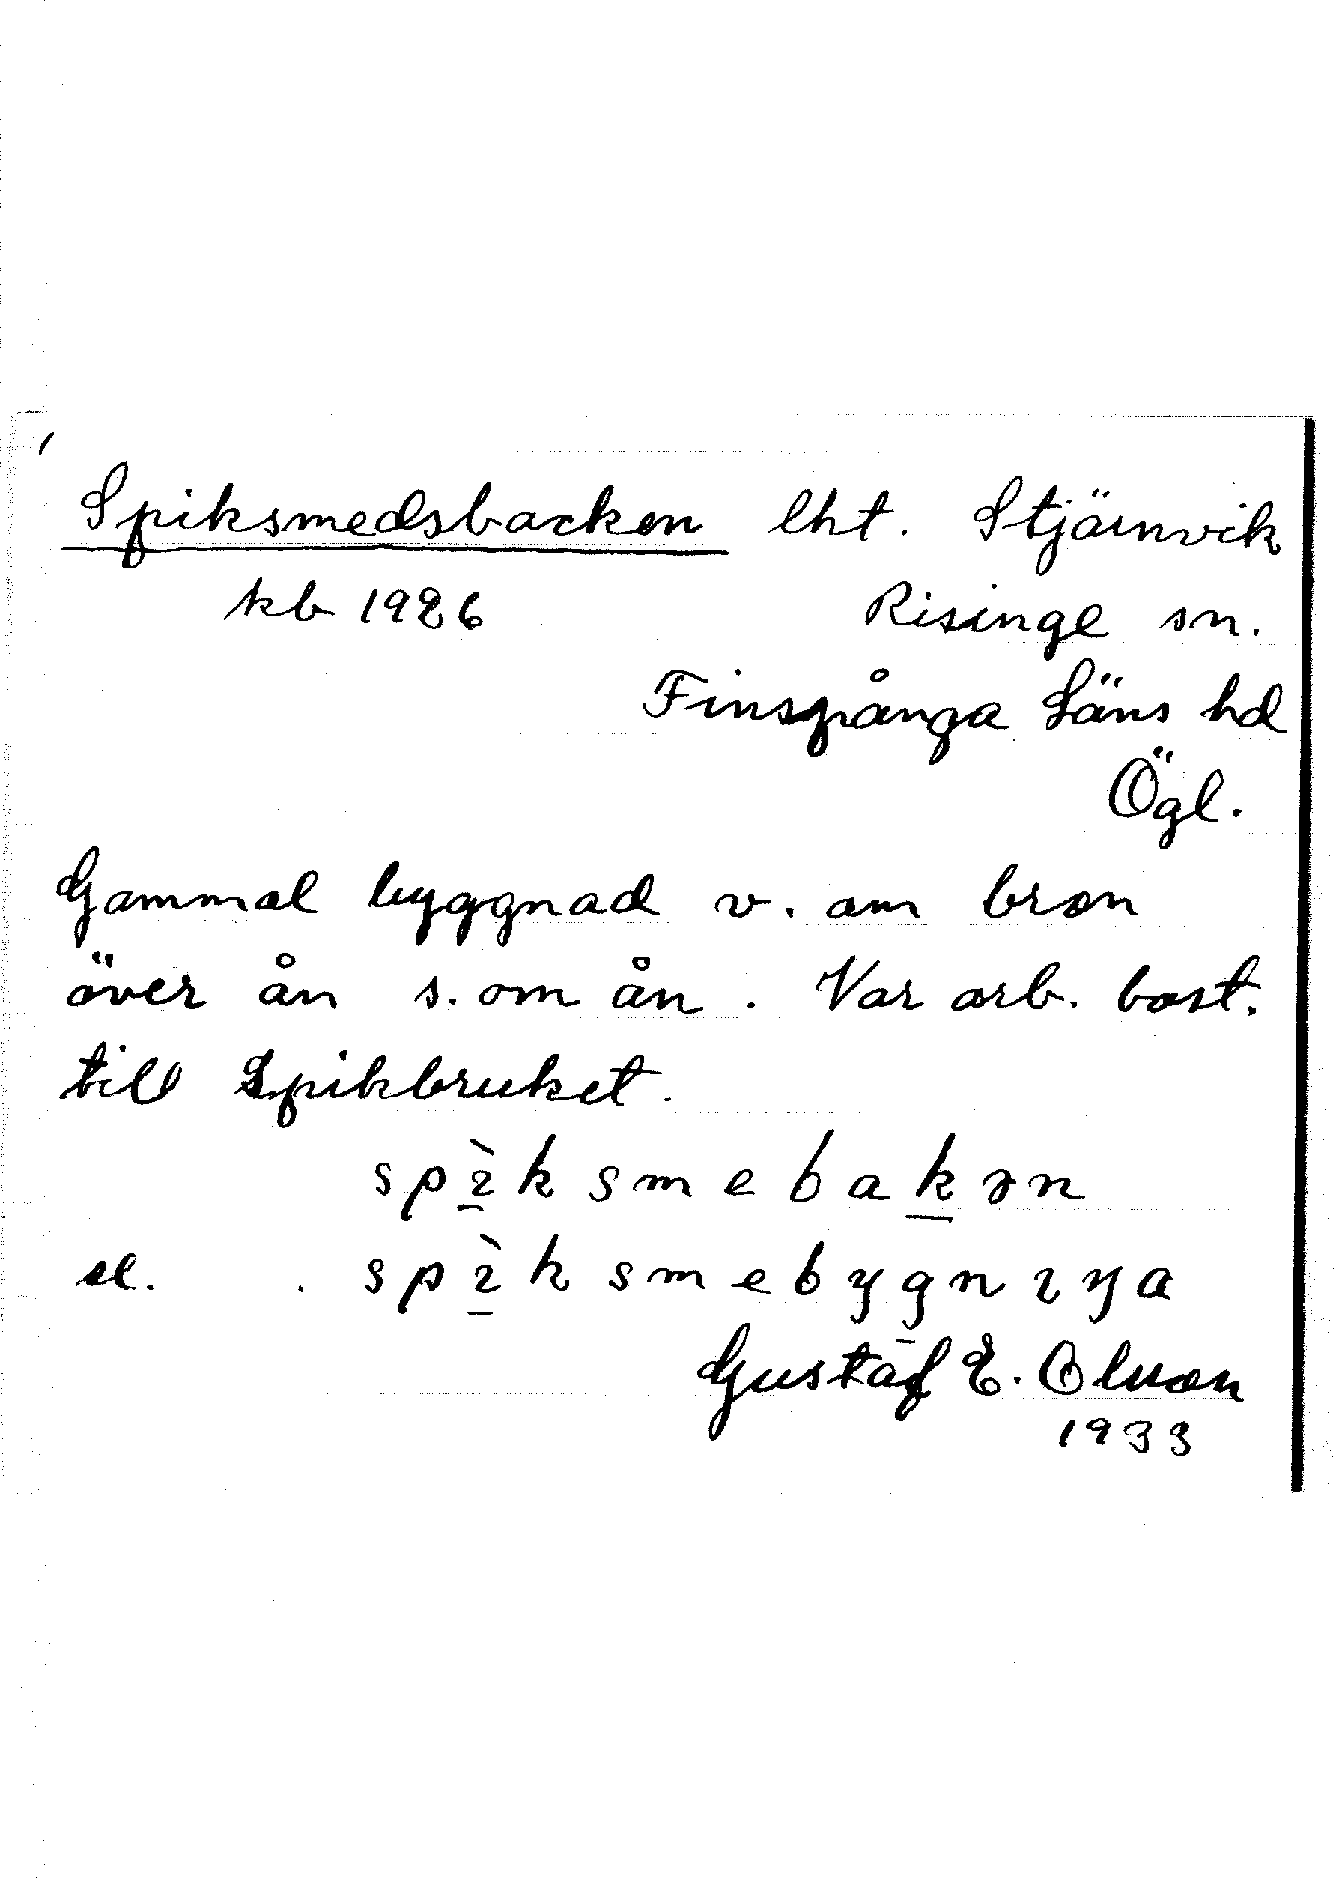 Spiksmedsbacken lht. Stjärnvik
kb 1926 Risinge sn.
Finspånga Läns hd
Ögl.
Gammal byggnad v. om bron
över ån s. om ån. Var arb. bost.
till Spikbruket.
spìksmebakən
el. spìksmebygnıŋa
Gustaf E. Olsson
1933